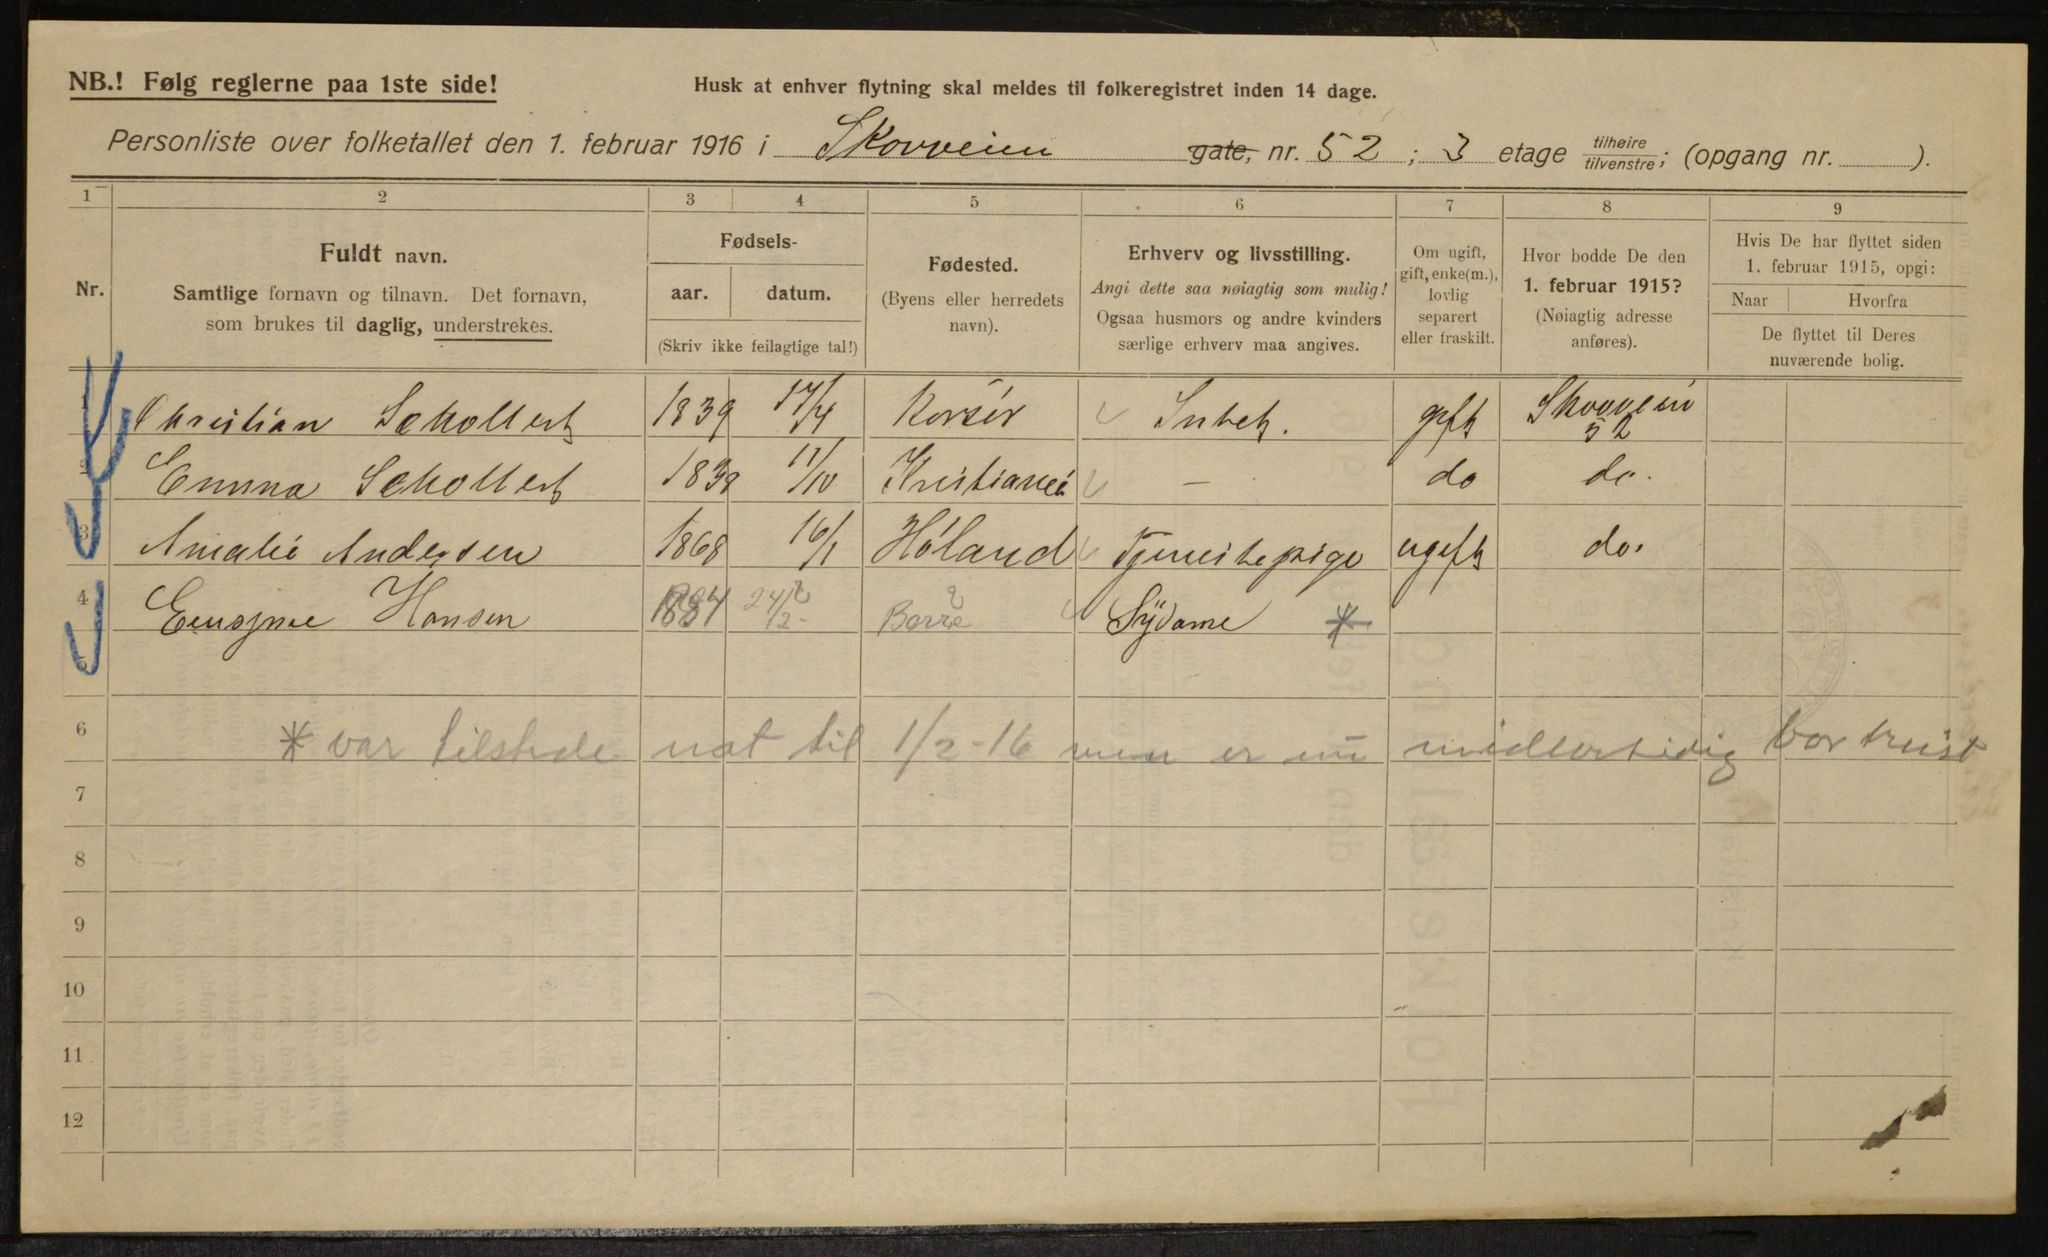 NB.! Følg reglerne paa 1ste side!
Husk at enhver flytning skal meldes til folkeregistret inden 14 dage.
Personliste over folketallet den 1. februar 1916 i Skovveien gate, nr. 52 ; 3 etage tilhøire/tilvenstre; (opgang nr. ).
1 2 3 4 5 6 7 8 9
Nr.
Fuldt navn.
Samtlige fornavn og tilnavn. Det fornavn,
som brukes til daglig, understrekes.
Fødsels-
aar. datum.
(Skriv ikke feilagtige tal!)
Fødested.
(Byens eller herredets
navn).
Erhverv og livsstilling.
Angi dette saa nøiagtig som mulig!
Ogsaa husmors og andre kvinders
særlige erhverv maa angives.
Om ugift,
gift, enke(m.),
lovlig
separert
eller fraskilt.
Hvor bodde De den
1. februar 1915?
(Nøiagtig adresse
anføres).
Hvis De har flyttet siden
1. februar 1915, opgi:
Naar Hvorfra
De flyttet til Deres
nuværende bolig.
1 Christian Schollert 1839 17/4 Korsör gift Skovveien 52
2 Emma Schollert 1839 11/10 Kristiania — do do.
3 Amalie Andersen 1868 16/1 Höland Tjenestepige ugift do.
4 Hansen 1884 24/2 Borre Sÿdame *
5
6 * var tilstede nat til 1/2-16 men er nu midlertidig bortreist
7
8
9
10
11
12